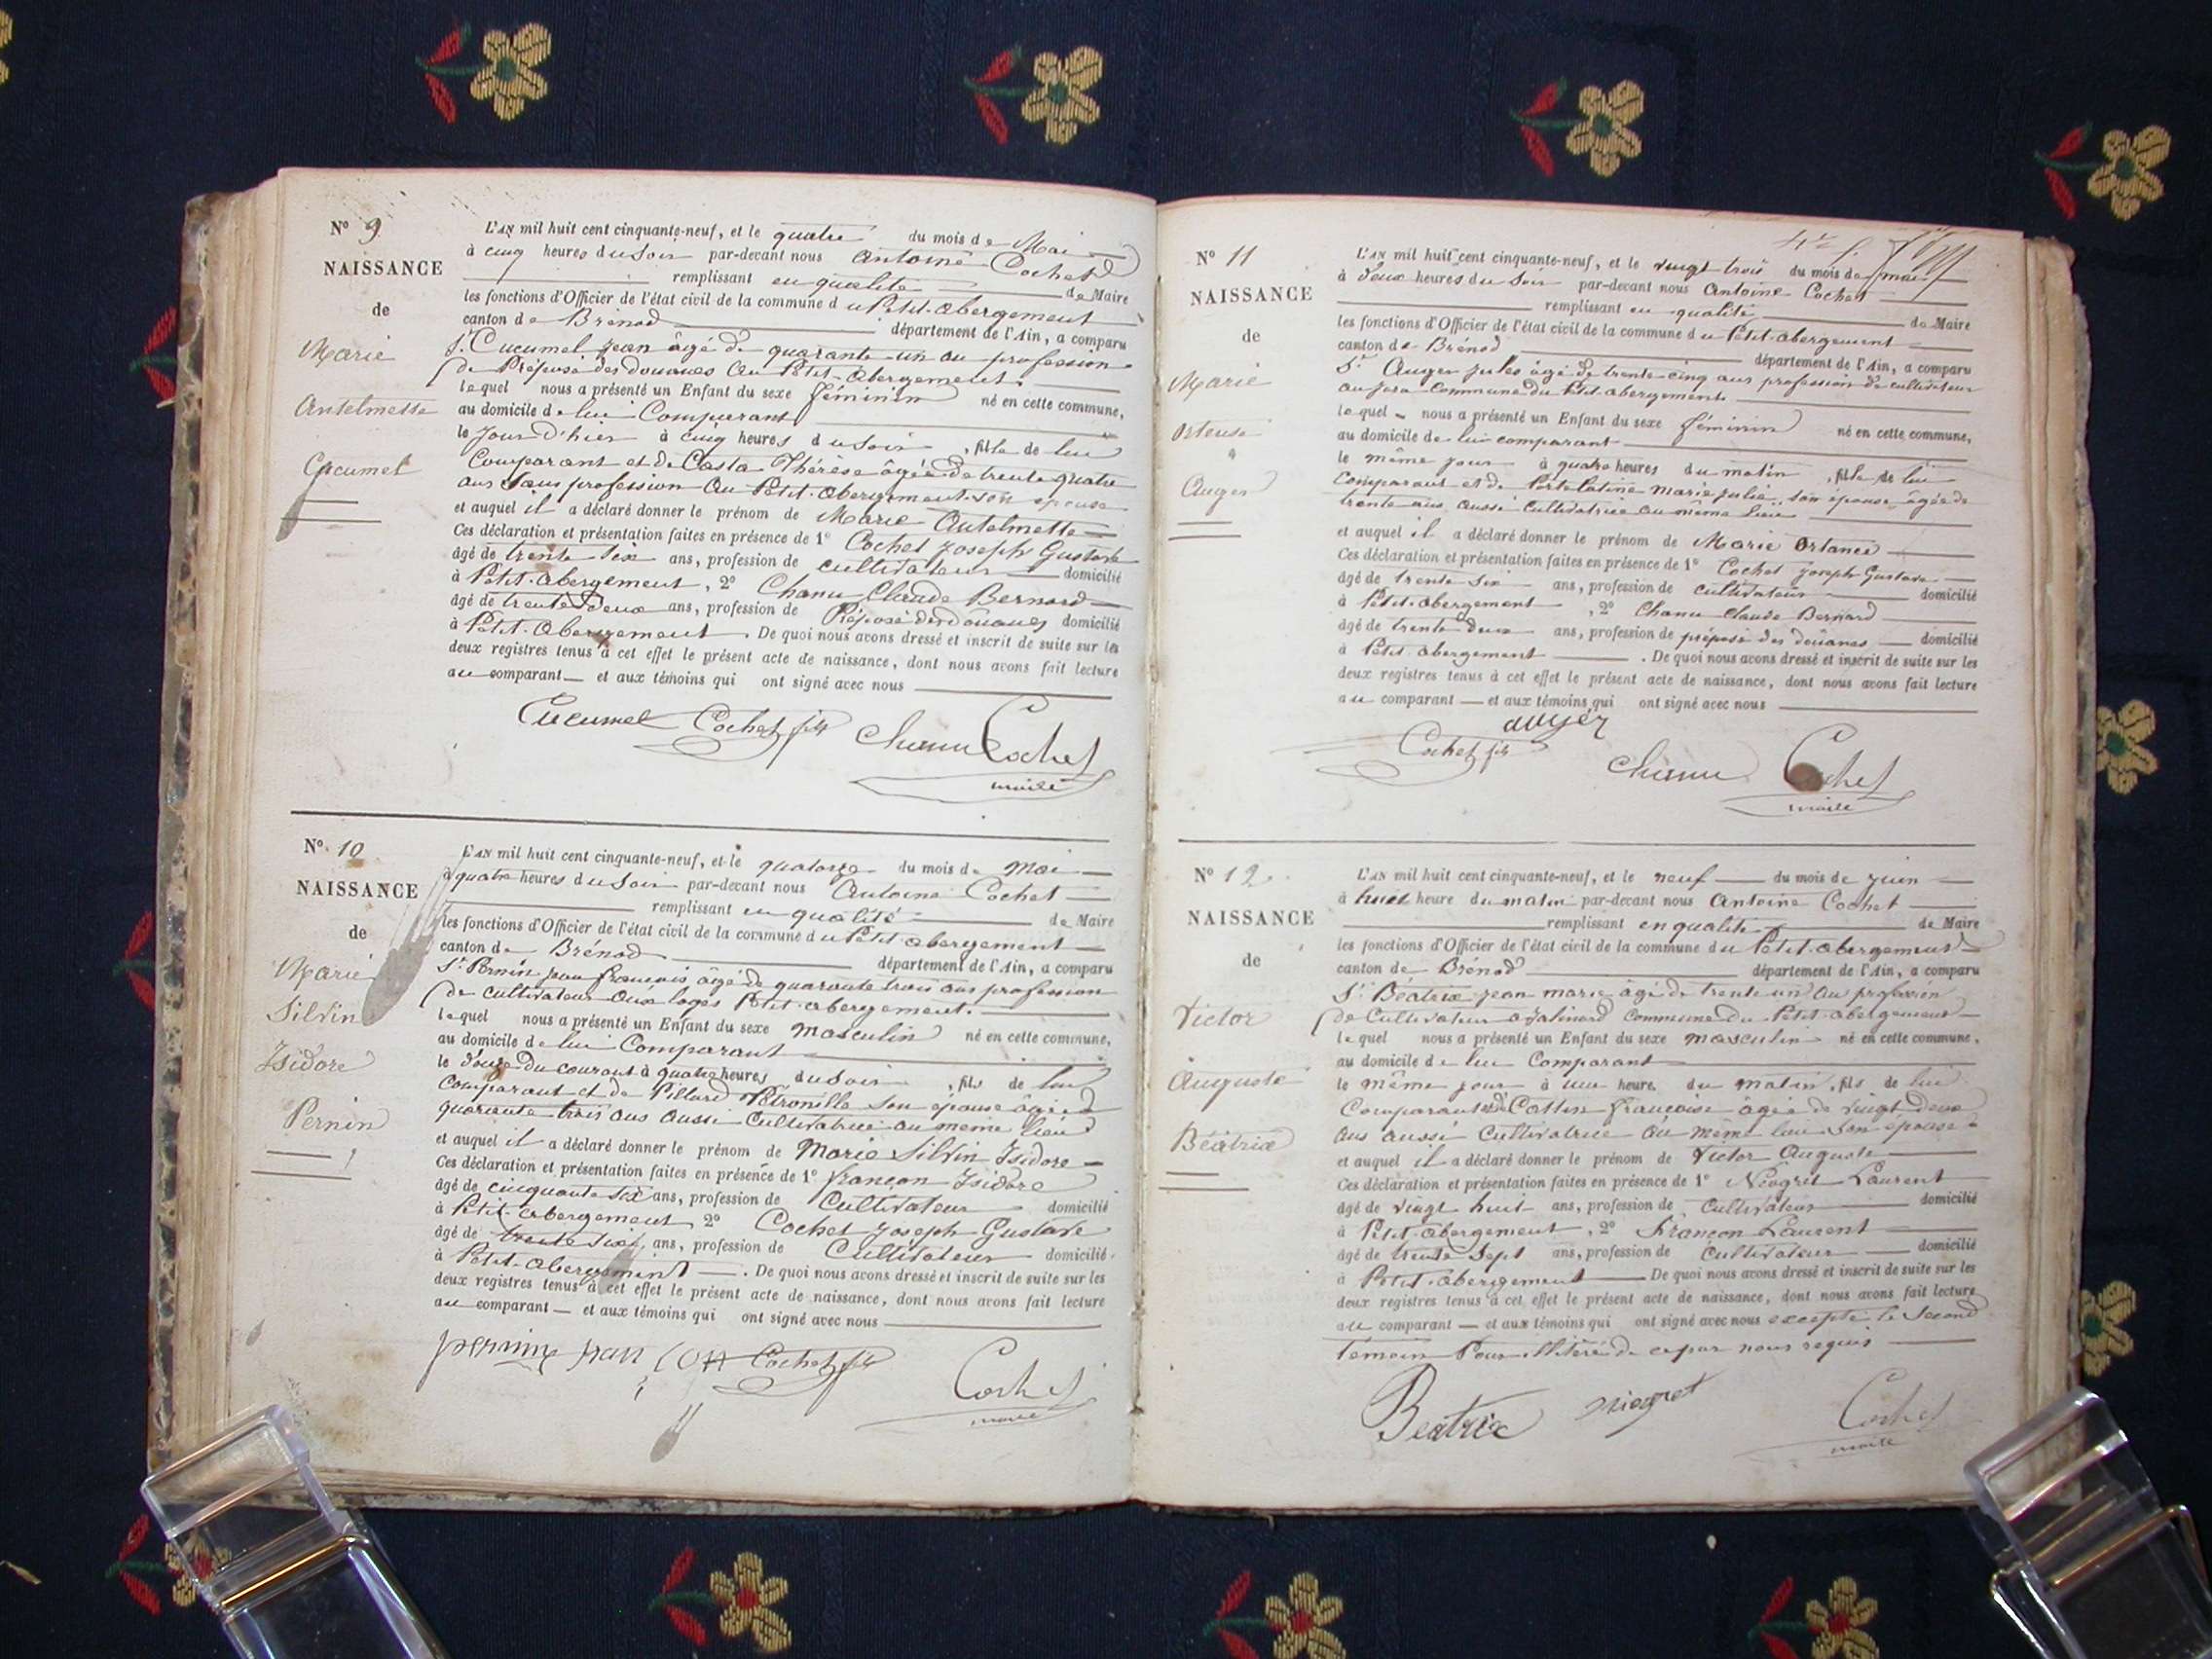 N° 9
NAISSANCE
de
Marie
Antelmette
Cucumel
L'AN mil huit cent cinquante-neuf, et le quatre du mois de Mai
à cinq heures du Soir par-devant nous Antoine Cochet
remplissant en qualité de Maire
les fonctions d'Officier de l'état civil de la commune du Petit-Abergement
canton de Brénod département de l'Ain, a comparu
Sr Cucumel Jean âgé de quarante-un an profession
de Préposé des douanes au Petit-Abergement.
lequel nous a présenté un Enfant du sexe féminin né en cette commune,
au domicile de lui Comparant
le Jour d'hier à cinq heures du Soir, fille de lui
Comparant et de Casta Thérèse âgée de trente quatre
ans Sans profession au Petit-abergement son épouse
et auquel il a déclaré donner le prénom de Marie Antelmette
Ces déclaration et présentation faites en présence de 1° Cochet Joseph Gustave
âgé de trente six ans, profession de cultivateur domicilié
à Petit-Abergement, 2° Chanu Claude Bernard
âgé de trente deux ans, profession de Préposé des douanes domicilié
à Petit-Abergement. De quoi nous avons dressé et inscrit de suite sur les
deux registres tenus à cet effet le présent acte de naissance, dont nous avons fait lecture
au comparant et aux témoins qui ont signé avec nous
Cucumel Cochet fils Chanu Cochet
maire
N° 10
NAISSANCE
de
Marie
Silvin
Isidore
Pernin
L'AN mil huit cent cinquante-neuf, et le quatorze du mois de Mai
à quatre heures du Soir par-devant nous Antoine Cochet
remplissant en qualité de Maire
les fonctions d'Officier de l'état civil de la commune du Petit-abergement
canton de Brénod département de l'Ain, a comparu
Sr Pernin jean françois âgé de quarante trois ans profession
de cultivateur aux loges Petit-abergement.
lequel nous a présenté un Enfant du sexe masculin né en cette commune,
au domicile de lui Comparant
le douze du courant à quatre heures du Soir, fils de lui
Comparant et de Pillard Pétronille son épouse âgée de
quarante trois ans aussi Cultivatrice au même lieu
et auquel il a déclaré donner le prénom de Marie Silvin Isidore
Ces déclaration et présentation faites en présence de 1° françon Isidore
âgé de cinquante six ans, profession de Cultivateur domicilié
à Petit-abergement 2° Cochet Joseph Gustave
âgé de trente six, ans, profession de Cultivateur domicilié
à Petit-Abergement. De quoi nous avons dressé et inscrit de suite sur les
deux registres tenus à cet effet le présent acte de naissance, dont nous avons fait lecture
au comparant et aux témoins qui ont signé avec nous
pernin fran con Cochet fils Cochet
maire
N° 11
NAISSANCE
de
Marie
Ortense
Auger
L'AN mil huit cent cinquante-neuf, et le vingt trois du mois de mai
à deux heures du Soir par-devant nous Antoine Cochet
remplissant en qualité de Maire
les fonctions d'Officier de l'état civil de la commune du Petit-abergement
canton de Brénod département de l'Ain, a comparu
Sr Auger jules âgé de trente cinq ans profession de cultivateur
au jora Commune du Petit-abergement
lequel nous a présenté un Enfant du sexe féminin né en cette commune,
au domicile de lui comparant
le même jour à quatre heures du matin, fille de lui
Comparant et de Portelatine marie julie, son épouse âgée de
trente ans aussi Cultivatrice au même lieu
et auquel il a déclaré donner le prénom de Marie Ortance
Ces déclaration et présentation faites en présence de 1° Cochet Joseph Gustave
âgé de trente six ans, profession de cultivateur domicilié
à Petit-abergement, 2° Chanu Claude Bernard
âgé de trente deux ans, profession de préposé des douanes domicilié
à Petit-abergement. De quoi nous avons dressé et inscrit de suite sur les
deux registres tenus à cet effet le présent acte de naissance, dont nous avons fait lecture
au comparant et aux témoins qui ont signé avec nous
auger
Cochet fils Chanu Cochet
maire
N° 12
NAISSANCE
de
Victor
Auguste
Béatrix
L'AN mil huit cent cinquante-neuf, et le neuf du mois de juin
à huit heure du matin par-devant nous Antoine Cochet
remplissant en qualité de Maire
les fonctions d'Officier de l'état civil de la commune du Petit-abergement
canton de Brénod département de l'Ain, a comparu
Sr Béatrix jean marie âgé de trente un an profession
de Cultivateur a Jalinard Commune du Petit-abergement
lequel nous a présenté un Enfant du sexe masculin né en cette commune,
au domicile de lui Comparant
le même jour à une heure du matin, fils de lui
Comparant et de Cottin françoise âgée de vingt deux
ans aussi Cultivatrice au même lieu Son épouse
et auquel il a déclaré donner le prénom de Victor Auguste
Ces déclaration et présentation faites en présence de 1° Niogret Laurent
âgé de vingt huit ans, profession de Cultivateur domicilié
à Petit-abergement, 2° Françon Laurent
âgé de trente sept ans, profession de Cultivateur domicilié
à Petit-abergement De quoi nous avons dressé et inscrit de suite sur les
deux registres tenus à cet effet le présent acte de naissance, dont nous avons fait lecture
au comparant et aux témoins qui ont signé avec nous excepté le Second
Temoin Pour illitéré de ce par nous requis
Beatrix niogret Cochet
maire